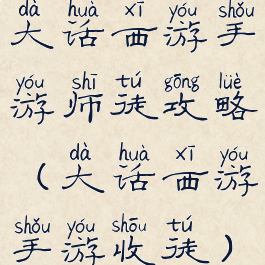 dà huà xī yóu shǒu
大话西游手
yóu shī tú gōng lüè
游师徒攻略
dà huà xī yóu
（大话西游
shǒu yóu shōu tú
手游收徒）